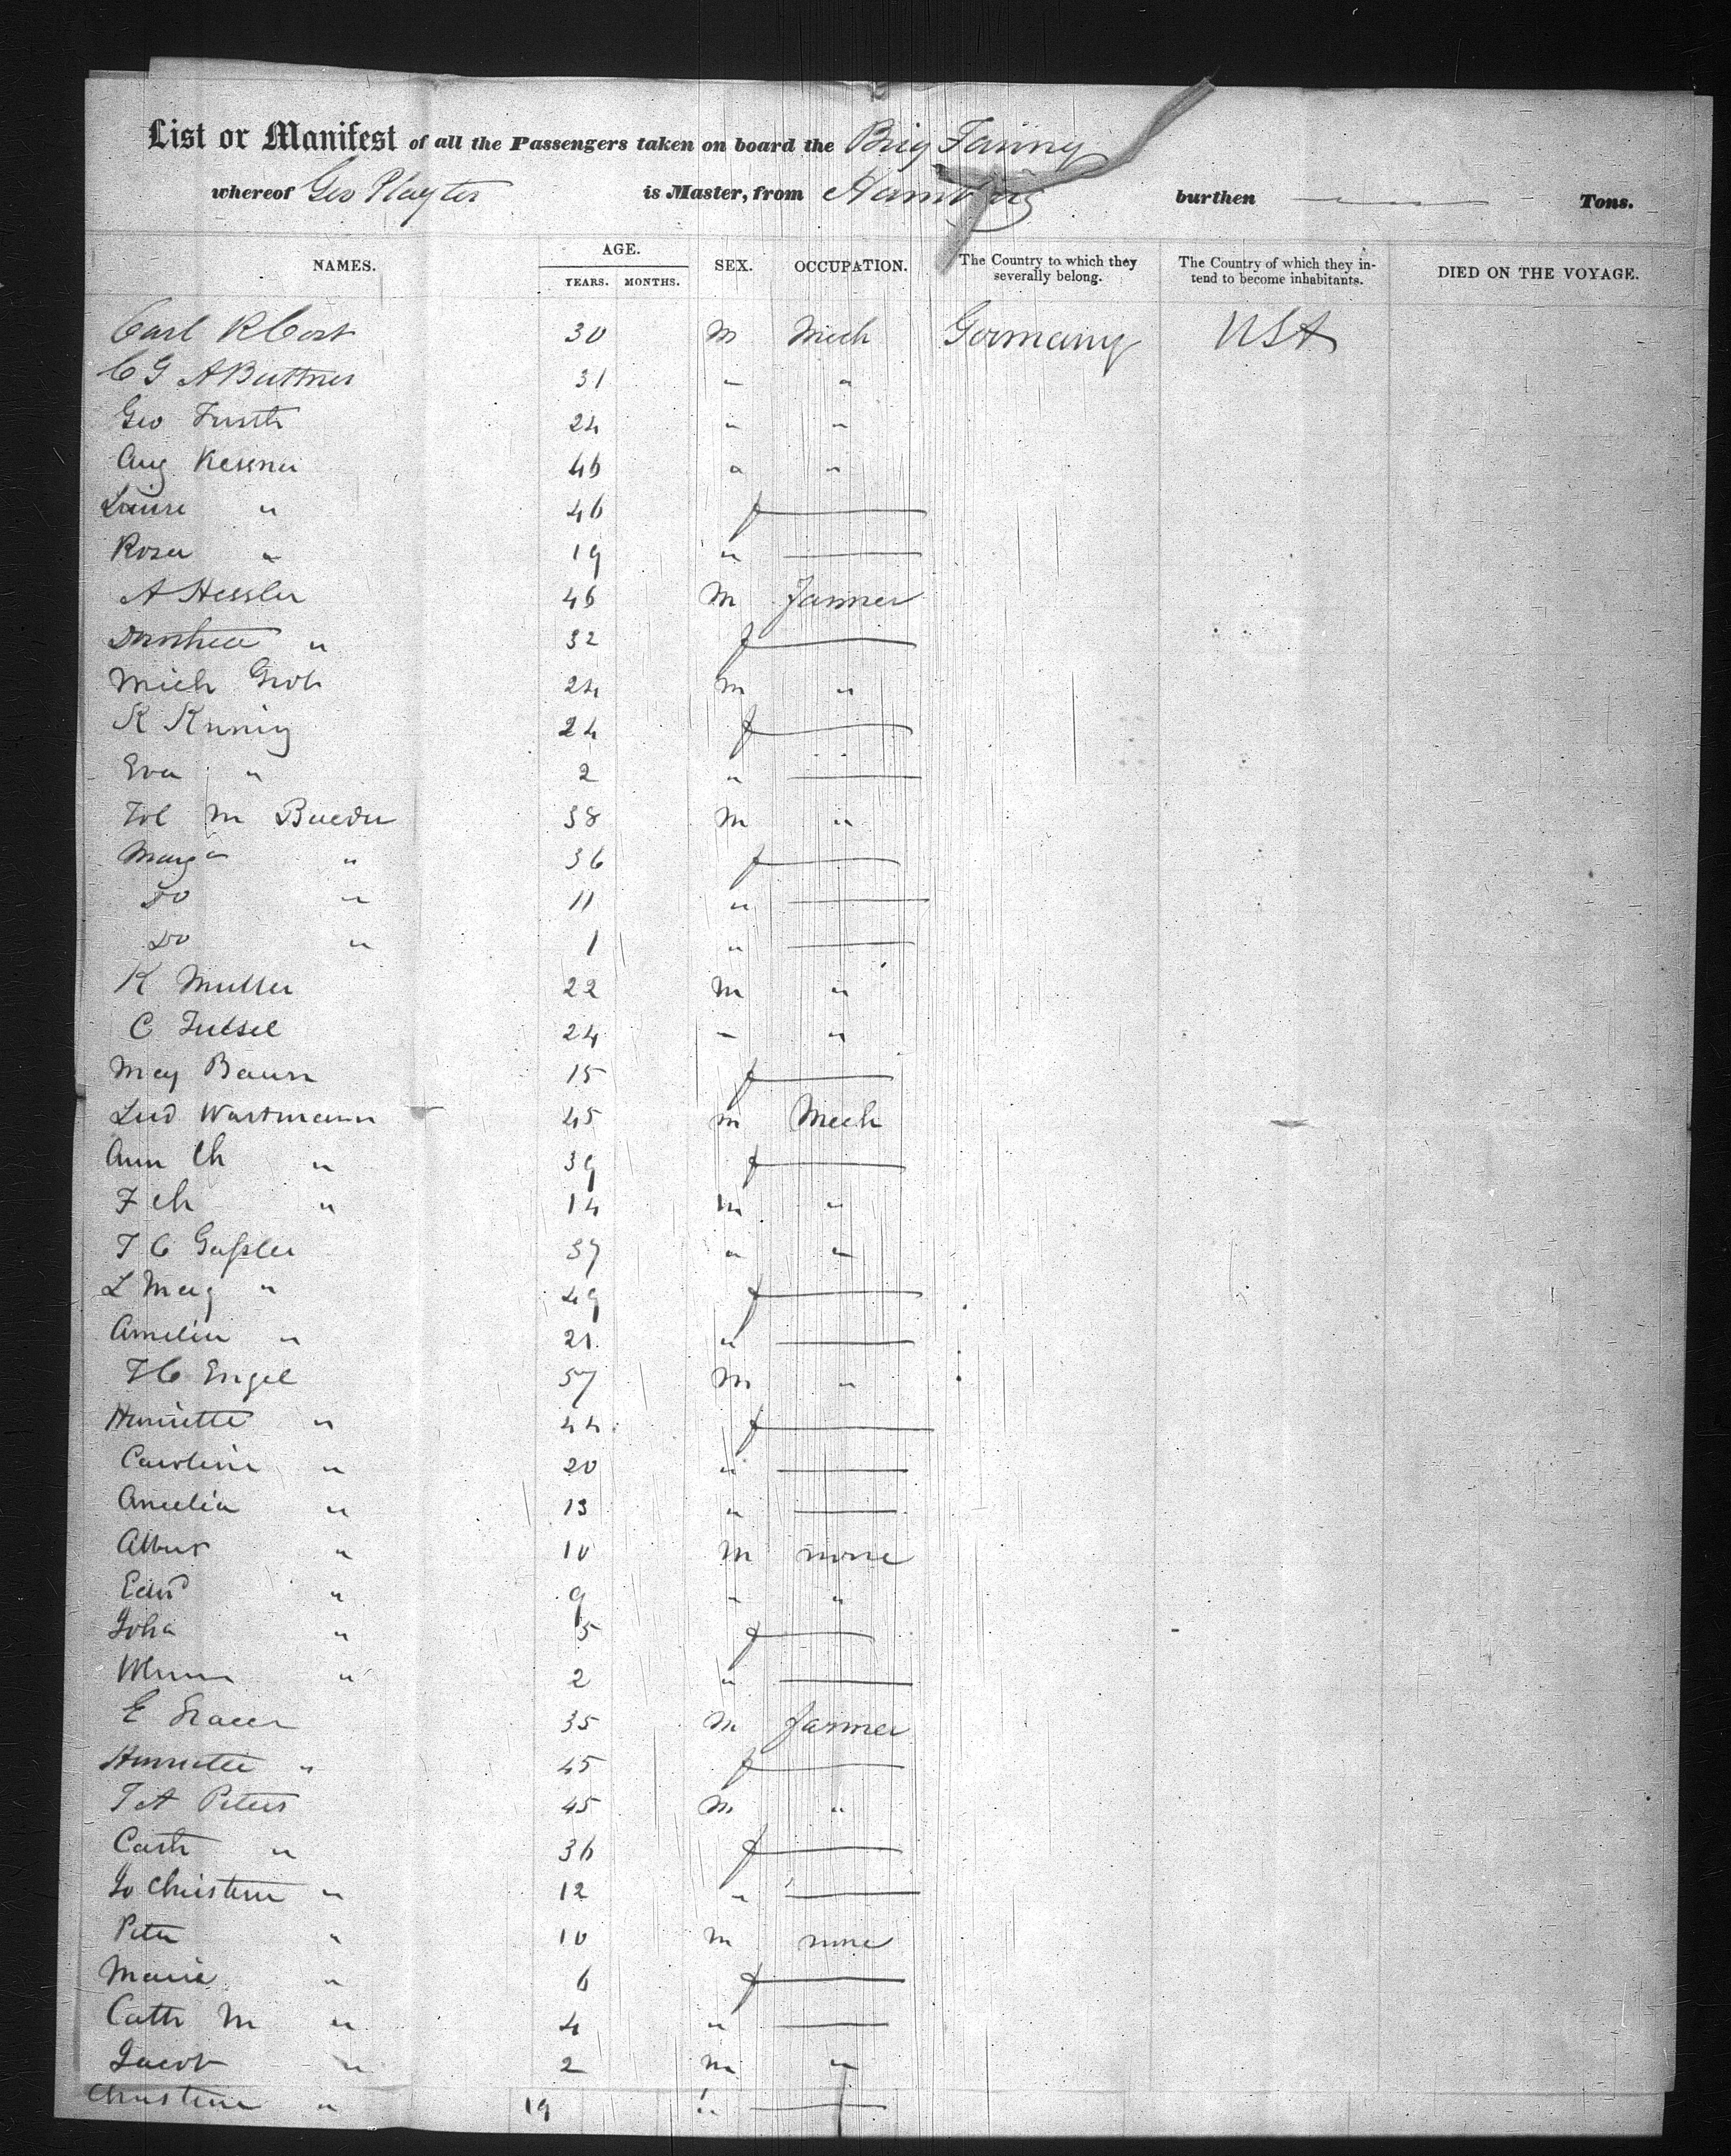 List or Manifest of all the Passengers taken on board the Brig Fanny
whereof Geo Playter is Master, from Hamburg burthen Tons.
NAMES. AGE. YEARS. MONTHS. SEX. OCCUPATION. The Country to which they severally belong. The Country of which they intend to become inhabitants. DIED ON THE VOYAGE.
Carl R 30 M Mech Germany USA
C G A Buttner 31 " "
Geo 24 " "
Aug Kessner 46 " "
" 46 f
Rosa " 19 "
A Hessler 46 M Farmer
Dorothea " 32 f
Mich Grob 24 M "
K 24 f
Eva " 2 "
M 38 M "
Marga " 36 f
Do " 11 "
Do " 1 "
K Muller 22 M "
C 24 " "
15 f
Lud Wartmann 45 M Mech
Ann Ch " 39 f
F Ch " 14 M "
37 " "
L Marg " 49 f
Amelia " 21 "
Engel 57 M "
Henriette " 44 f
Caroline " 20 "
Amelia " 13 "
Albert " 10 M none
Edwd " 9 " "
Joha " 5 f
" 2 "
E 35 M Farmer
Henriette " 45 f
Peters 45 M "
Cath " 36 f
Jo Christine " 12 "
Peter " 10 M none
Marie " 6 f
Cath M " 4 "
Jacob " 2 M "
Christine " 19 "